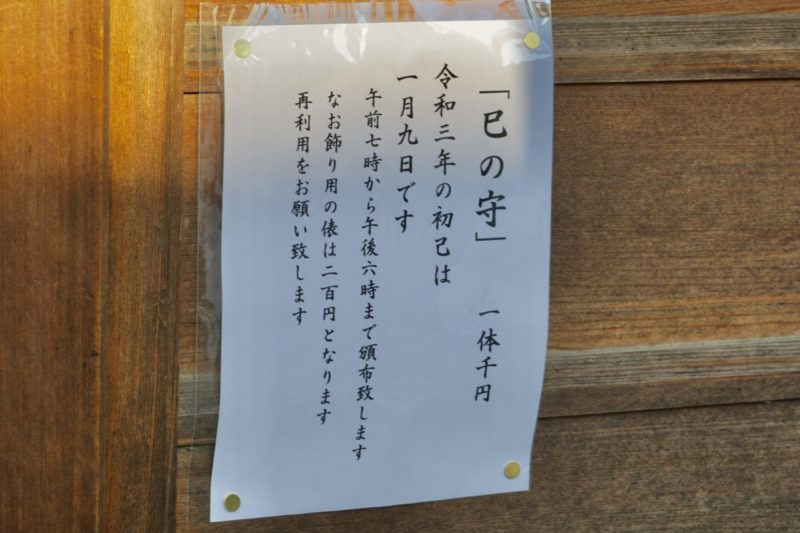 「巳の守」 一体千円
令和三年の初己は
一月九日です
午前七時から午後六時まで頒布致します
なお飾り用の俵は二百円となります
再利用をお願い致します